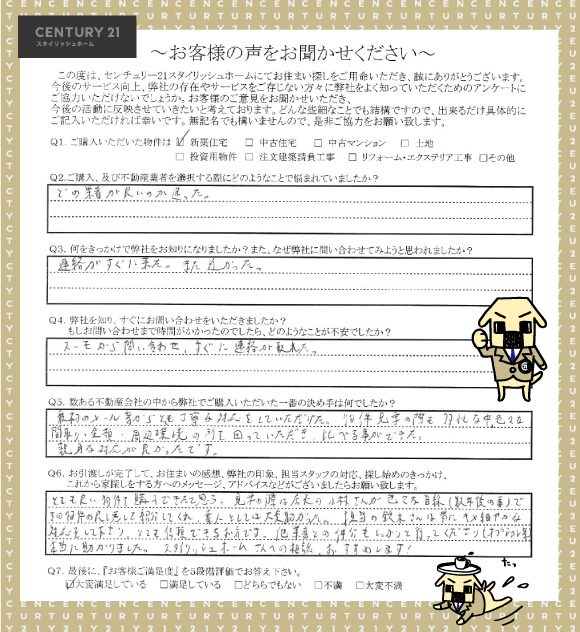 CENTURY 21
スタイリッシュホーム
～お客様の声をお聞かせください～
この度は、センチュリー21スタイリッシュホームにてお住まい探しをご用命いただき、誠にありがとうございます。
今後のサービス向上、弊社の存在やサービスをご存じない方々に弊社をよく知っていただくためのアンケートに
ご協力いただけないでしょうか。お客様のご意見をお聞かせいただき、
今後の活動に反映させていきたいと考えております。どんな些細なことでも結構ですので、出来るだけ具体的に
ご記入いただければ幸いです。無記名でも構いませんので、是非ご協力をお願い致します。
Q1. ご購入いただいた物件は ☑ 新築住宅 □ 中古住宅 □ 中古マンション □ 土地
□ 投資用物件 □ 注文建築請負工事 □ リフォーム・エクステリア工事 □その他
Q2.ご購入、及び不動産業者を選択する際にどのようなことで悩まれていましたか？
どの業者が良いのか迷った。
Q3. 何をきっかけで弊社をお知りになりましたか？また、なぜ弊社に問い合わせてみようと思われましたか？
連絡がすぐに来た。また近かった。
Q4. 弊社を知り、すぐにお問い合わせをいただきましたか？
もしお問い合わせまで時間がかかったのでしたら、どのようなことが不安でしたか？
スーモから問い合わせ、すぐに連絡が取れた。
Q5. 数ある不動産会社の中から弊社でご購入いただいた一番の決め手は何でしたか？
最初のメール等からとても丁寧な対応をしていただけた。物件見学の際も多忙な中色々な
間取り・金額・周辺環境の所を回っていただき、比べる事ができた。
親身な対応が良かったです。
Q6. お引渡しが完了して、お住まいの感想、弊社の印象、担当スタッフの対応、探し始めのきっかけ、
これから家探しをする方へのメッセージ、アドバイスなどがございましたらお願い致します。
とても良い物件を購入できたと思う。見学の際は店長の小林さんが色々な目線（数年後の事）で
その物件の良し悪しを紹介してくれ、素人としては大変助かった。担当の鈴木さんは常にきめ細やかな
対応をして下さり、とても信頼できる方です。他業者との仲介もしっかりと行ってくださり
本当に助かりました。スタイリッシュホームさんへの相談、おすすめします！
Q7. 最後に、『お客様ご満足度』を5段階評価でお答え下さい。
☑大変満足している □満足している □どちらでもない □不満 □大変不満